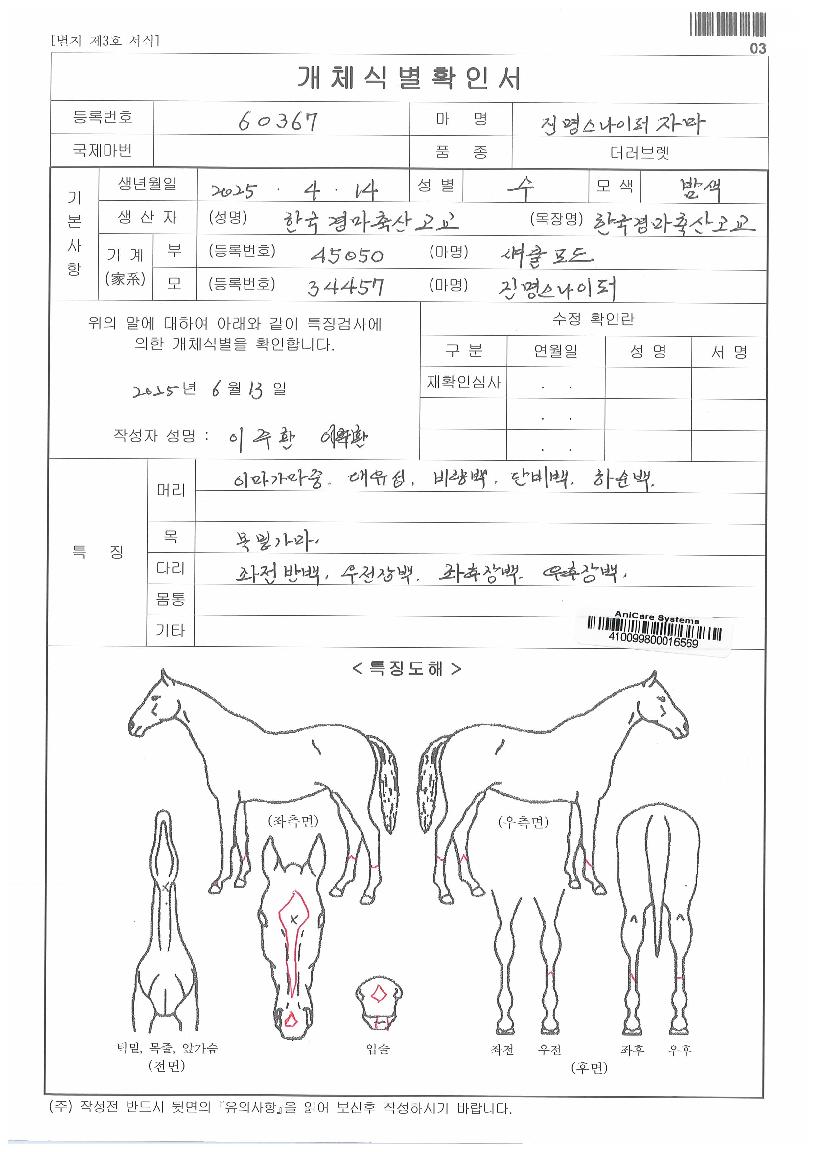 [별지 제3호 서식]
03
개체식별확인서
등록번호 60367 마 명 진명스나이퍼자마
국제마번 품 종 더러브렛
기본사항
생년월일 2025 . 4 . 14 성별 수 모색 밤색
생산자 (성명) 한국경마축산고교 (목장명) 한국경마축산고교
기계(家系) 부 (등록번호) 45050 (마명) 섀클포드
모 (등록번호) 34457 (마명) 진명스나이퍼
위의 말에 대하여 아래와 같이 특징검사에
의한 개체식별을 확인합니다.
2025년 6월 13일
작성자 성명 : 이주환
수정 확인란
구분 연월일 성명 서명
재확인심사 . .
. .
. .
특 징
머리 이마가마중. 대유성. 비량백. 단비백. 하순백.
목 목밑가마.
다리 좌전반백. 우전장백. 좌후장백. 우후장백.
몸통
기타
AniCare Systems
410099800016569
< 특징도해 >
(좌측면) (우측면)
턱밑, 목줄, 앞가슴
(전면)
입술
좌전 우전 좌후 우후
(후면)
(주) 작성전 반드시 뒷면의 『유의사항』을 읽어 보신후 작성하시기 바랍니다.